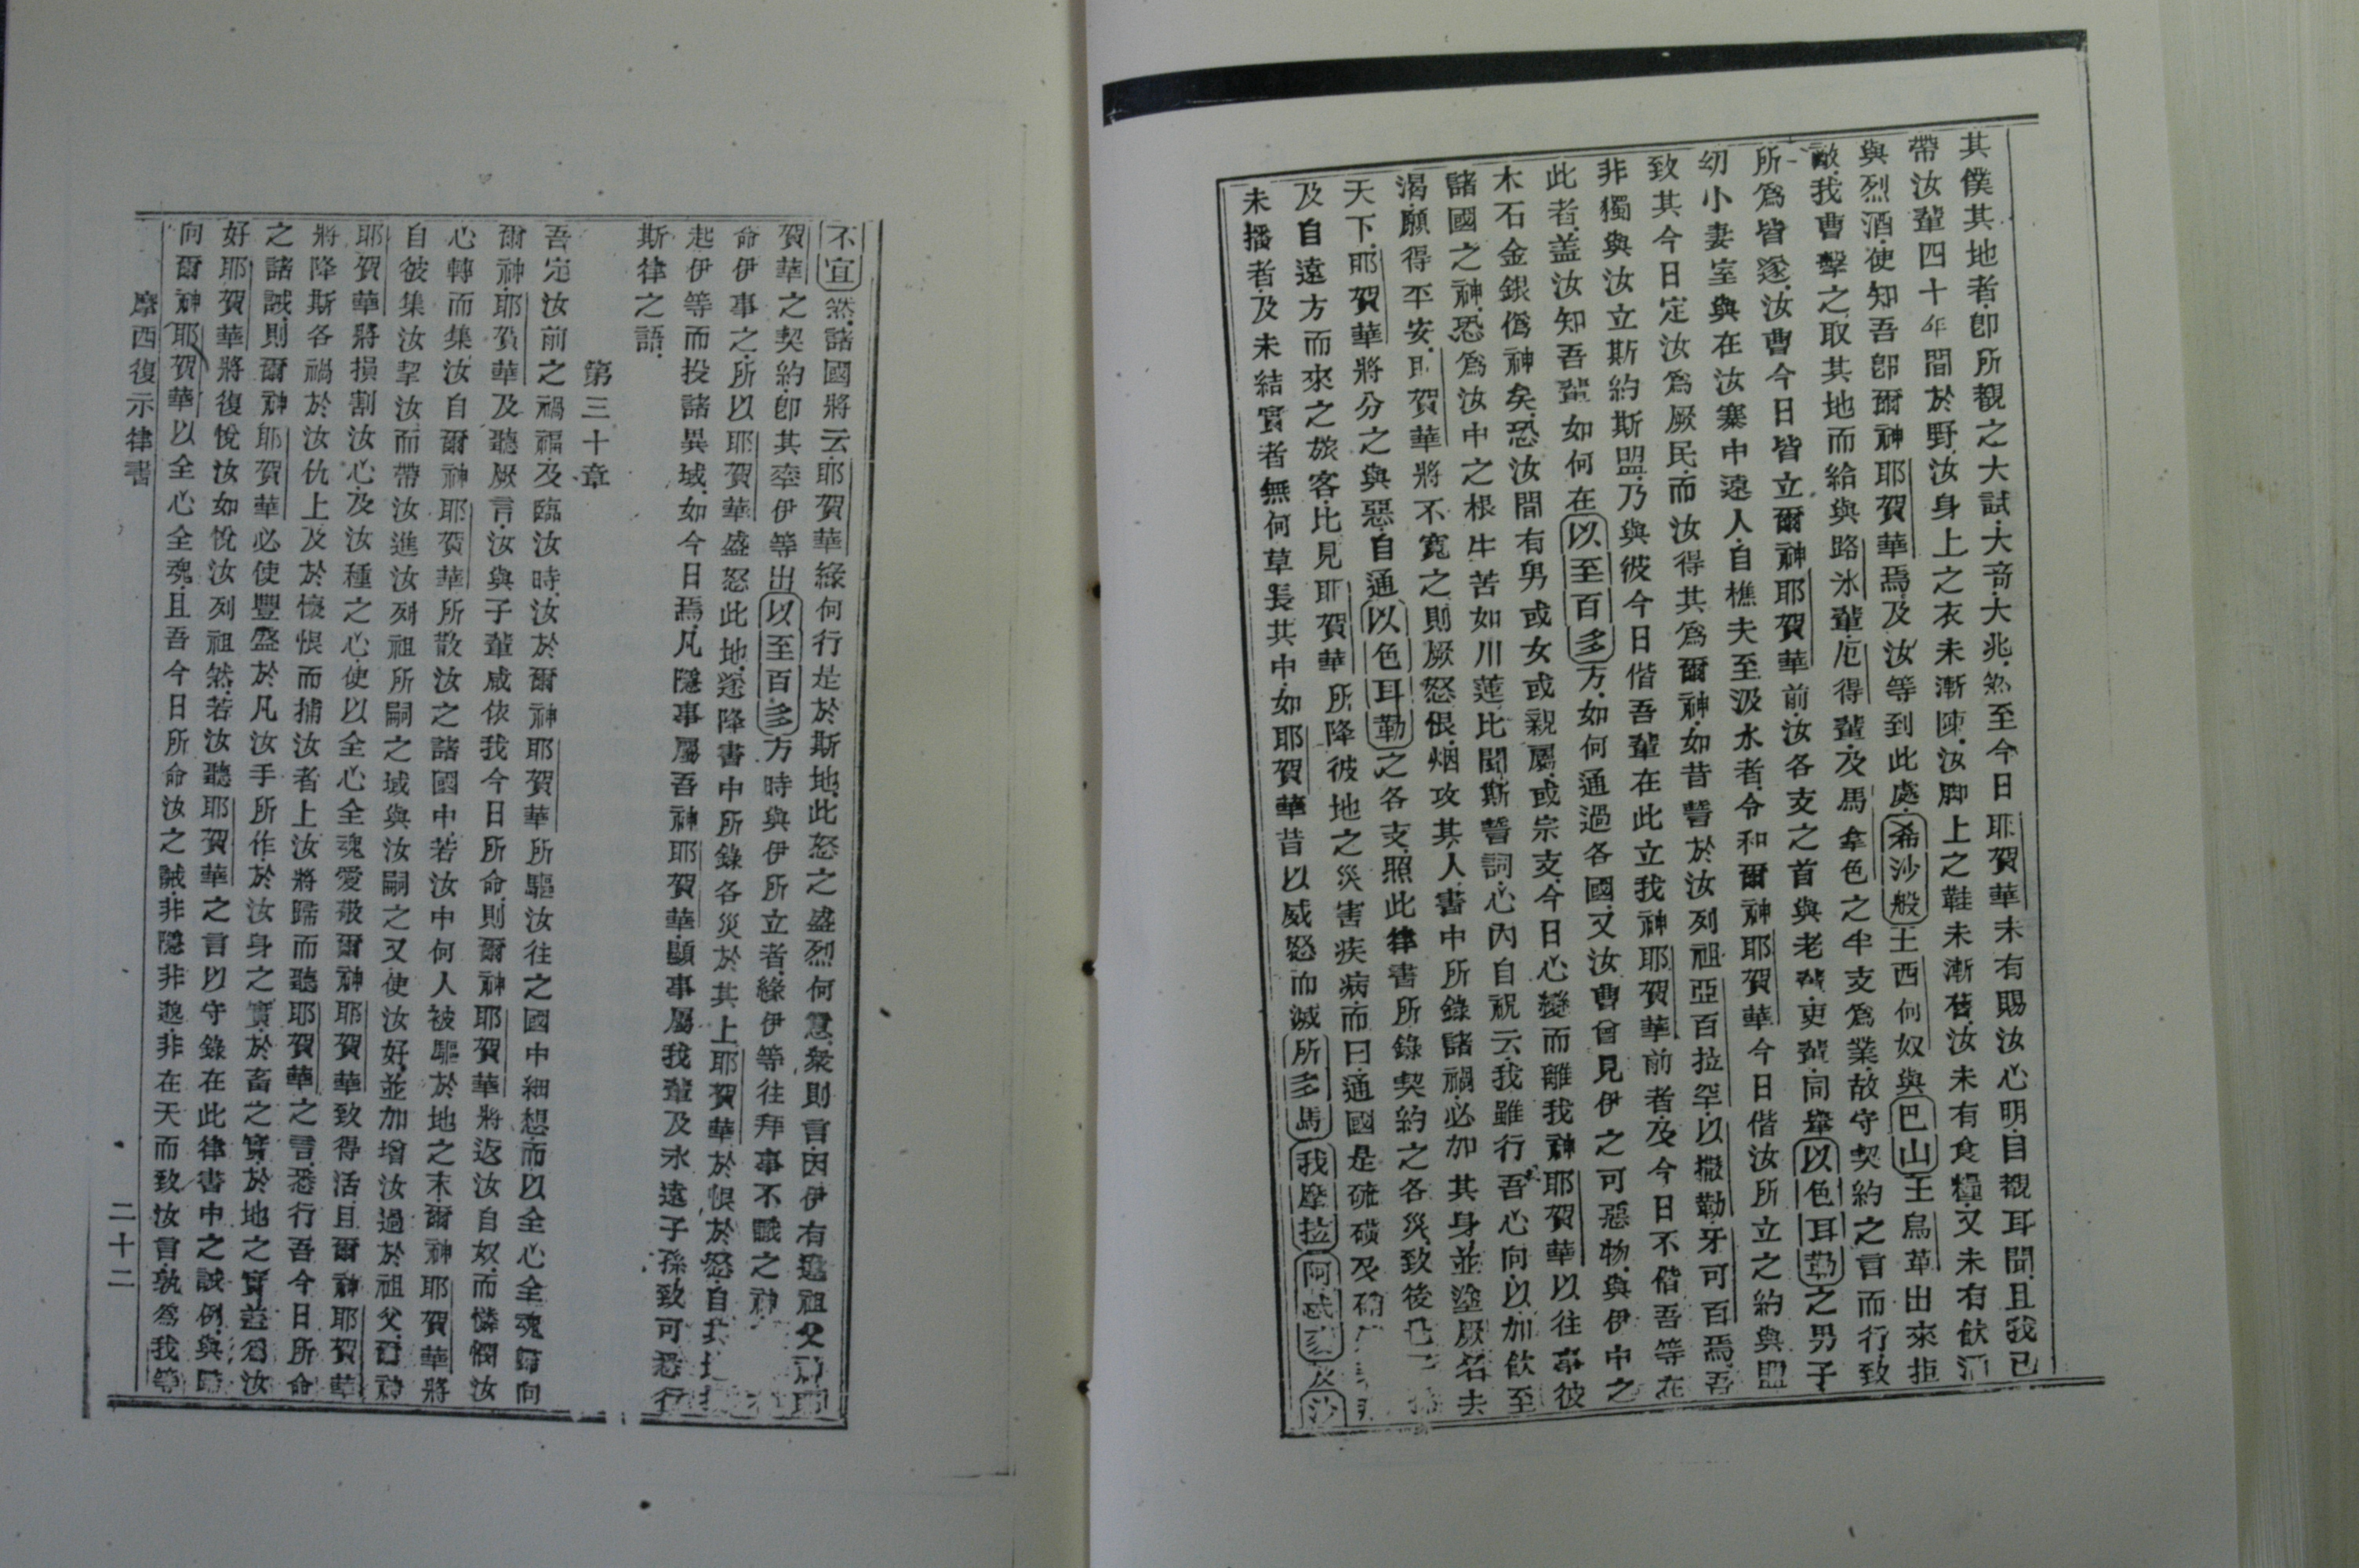 其僕其地者即所覩之大試大奇大兆然至今日耶賀華未有賜汝心明自覩耳聞且我已
帶汝輩四十年間於野汝身上之衣未漸陳汝脚上之鞋未漸舊汝未有食糧又未有飲酒
與烈酒使知吾即爾神耶賀華焉及汝等到此處希沙般王西何奴與巴山王烏革出來拒
敵我曹擊之取其地而給與路氷輩厄得輩及馬拿色之半支爲業故守契約之言而行致
所爲皆遂汝曹今日皆立爾神耶賀華前汝各支之首與老輩吏輩同舉以色耳勒之男子
幼小妻室與在汝寨中遠人自樵夫至汲水者令和爾神耶賀華今日偕汝所立之約與盟
致其今日定汝爲厥民而汝得其爲爾神如昔誓於汝列祖亞百拉罕以撒勒牙可百焉吾
非獨與汝立斯約斯盟乃與彼今日偕吾輩在此立我神耶賀華前者及今日不偕吾等在
此者盖汝知吾輩如何在以至百多方如何通過各國又汝曹曾見伊之可惡物與伊中之
木石金銀僞神矣恐汝間有男或女或親屬或宗支今日心變而離我神耶賀華以往事彼
諸國之神恐爲汝中之根生苦如川蓮比聞斯誓詞心內自祝云我雖行吾心向以加飲至
渴願得平安耶賀華將不寬之則厥怒恨烟攻其人書中所錄諸禍必加其身並塗厥名去
天下耶賀華將分之與惡自通以色耳勒之各支照此律書所錄契約之各災致後
及自遠方而來之旅客比見耶賀華所降彼地之災害疾病而曰通國是硫磺及
未播者及未結實者無何草長其中如耶賀華昔以威怒而滅所多馬我摩拉阿及沙
不宜然諸國將云耶賀華緣何行是於斯地此怒之盛烈何意衆則言因伊有遺祖父神耶
賀華之契約即其率伊等出以至百多方時與伊所立者緣伊等往拜事不識之神
命伊事之所以耶賀華盛怒此地遂降書中所錄各災於其上耶賀華於恨於怒自其地
起伊等而投諸異域如今日焉凡隱事屬吾神耶賀華顯事屬我輩及永遠子孫致可悉行
斯律之語
第三十章
吾定汝前之禍福及臨汝時汝於爾神耶賀華所驅汝往之國中細想而以全心全魂歸向
爾神耶賀華及聽厥言汝與子輩咸依我今日所命則爾神耶賀華將返汝自奴而憐憫汝
心轉而集汝自爾神耶賀華所散汝之諸國中若汝中何人被驅於地之末爾神耶賀華將
自彼集汝挈汝而帶汝進汝列祖所嗣之域與汝嗣之又使汝好並加增汝過於祖父爾神
耶賀華將損割汝心及汝種之心使以全心全魂愛敬爾神耶賀華致得活且爾神耶賀華
將降斯各禍於汝仇上及於懷恨而捕汝者上汝將歸而聽耶賀華之言悉行吾今日所命
之諸誡則爾神耶賀華必使豐盛於凡汝手所作於汝身之實於畜之實於地之實益爲汝
好耶賀華將復悅汝如悅汝列祖然若汝聽耶賀華之言以守錄在此律書中之誡例與時
向爾神耶賀華以全心全魂且吾今日所命汝之誡非隱非邈非在天而致汝言孰爲我等
摩西復示律書 二十二